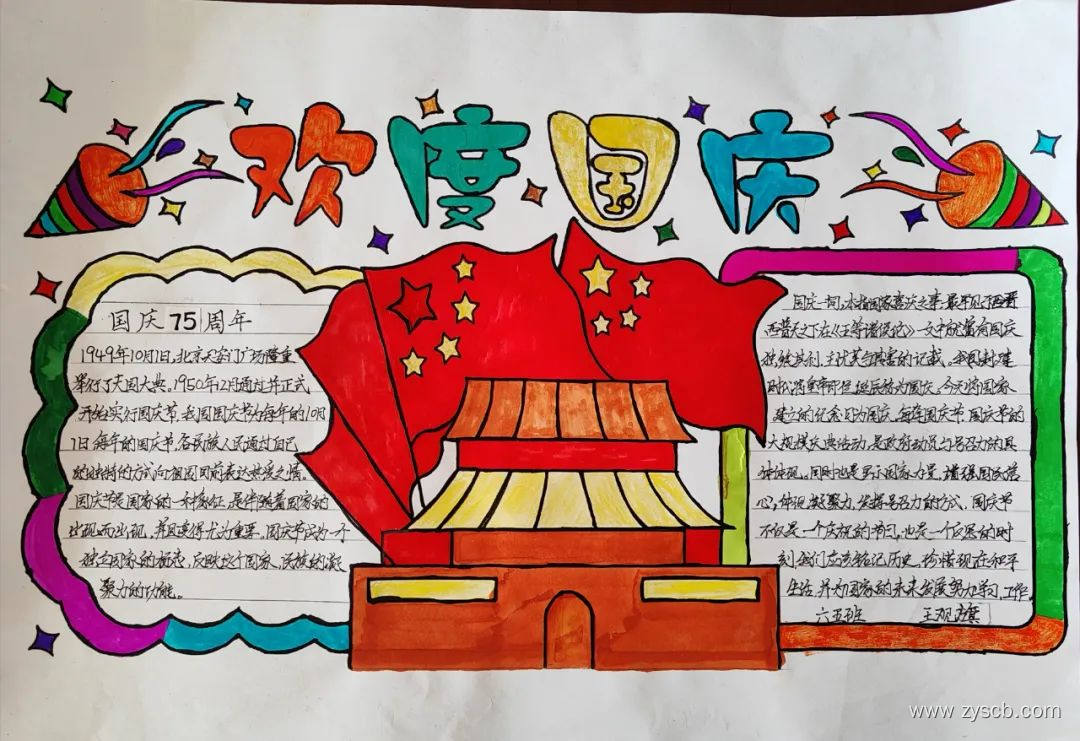 欢度国庆
国庆75周年
1949年10月1日,北京天安门广场隆重
举行了开国大典。1950年12月通过并正式
开始实行国庆节,我国国庆节为每年的10月
1日每年的国庆节,各民族人民通过自己
独特的方式向祖国母亲表达热爱之情。
国庆节是国家的一种象征,是伴随着国家的
出现而出现,并且变得尤为重要。国庆节成为一个
独立国家的标志,反映这个国家、民族的凝
聚力的功能。
国庆一词,本指国家喜庆之事,最早见于西晋
西晋天下在《五等诸侯论》一文中就曾有国庆
独飨其利,主忧莫与其害的记载。我国封建
时代将皇帝即位、诞辰称为国庆。今天将国家
建立的纪念日为国庆。每年国庆节,国庆节的
大规模庆典活动,是政府动员与号召力的具
体体现。同时也是显示国家力量,增强国民信
心,体现凝聚力,发挥号召力的方式。国庆节
不仅是一个庆祝的节日,也是一个反思的时
刻,我们应当铭记历史,珍惜现在和平
生活,并为国家的未来发展努力学习,工作。
六五班 王观旗
www.zyscb.com